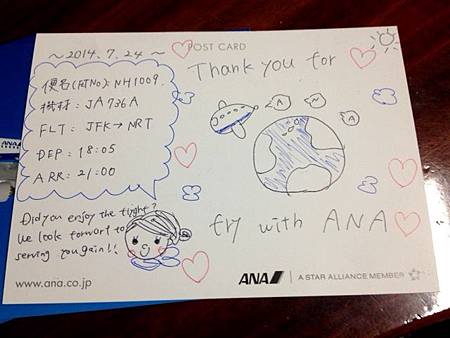 ~2014.7.24~
便名(FLTNo): NH1009
機材: JA736A
FLT: JFK→NRT
DEP: 18:05
ARR: 21:00
Did you enjoy the flight?
We look forwort to
serving you gain!!
www.ana.co.jp
POST CARD
Thank you for
A
N
A
fly with ANA
ANA
A STAR ALLIANCE MEMBER
ANA